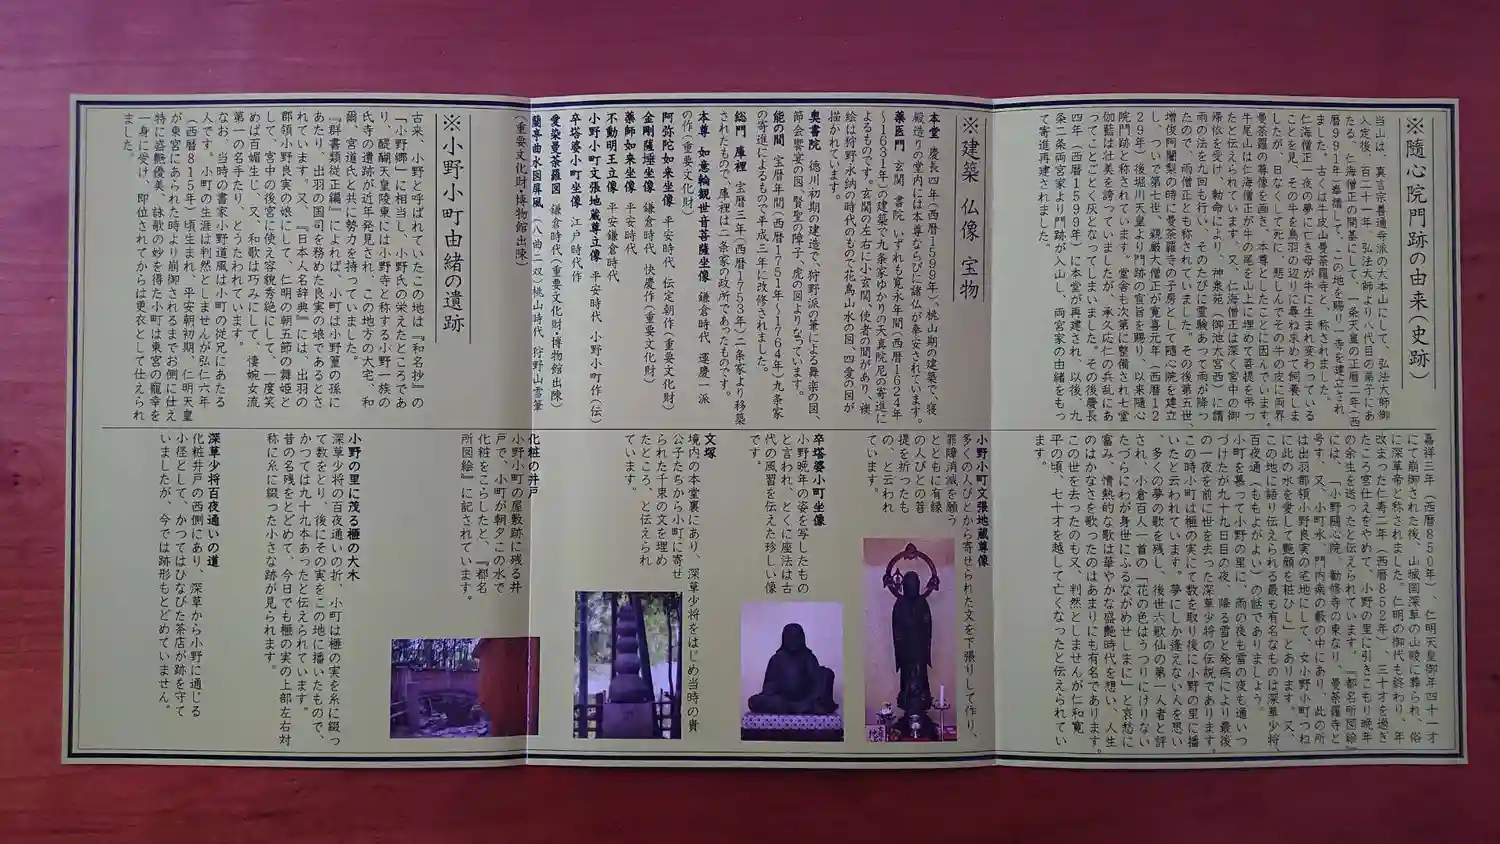 ※隨心院門跡の由来(史跡)
当山は、真言宗善通寺派の大本山にして、弘法大師御
入定後、百二十一年、弘法大師より八代目の弟子にあ
たる、仁海僧正の開基にして、一条天皇の正暦二年(西
暦991年)奉請して、この地を賜り一寺を建立され
ました。古くは牛皮山曼荼羅寺と、称されました。
仁海僧正一夜の夢に亡き母が牛に生まれ変わっている
ことを見、その牛を鳥羽の辺りに尋ね求めて飼養しま
したが、日なくして死に、悲しんでその牛の皮に両界
曼荼羅の尊像を画き、本尊としたことに因んでいます。
牛尾山は仁海僧正が牛の尾を山上に埋めて菩提を弔っ
たと伝えられています。又、仁海僧正は深く宮中の御
帰依を受け、勅命により、神泉苑(御池大宮西)に請
雨の法を九回も行い、そのたびに霊験あって雨が降っ
たので、雨僧正とも称されていました。その後第五世、
増俊阿闍梨の時に曼荼羅寺の子房として隨心院を建立
し、ついで第七世、親厳大僧正が寛喜元年(西暦12
29年)後堀川天皇より門跡の宣旨を賜り、以来隨心
院門跡と称されています。堂舎も次第に整備され七堂
伽藍は壮美を誇っていましたが、承久応仁の兵乱にあ
ってことごとく灰となってしまいました。その後慶長
四年(西暦1599年)に本堂が再建され、以後、九
条二条両宮家より門跡が入山し、両宮家の由緒をもっ
て寄進再建されました。
※建築・仏像・宝物
本堂 慶長四年(西暦1599年)、桃山期の建築で、寝
殿造りの堂内には本尊ならびに諸仏が奉安されています。
薬医門 玄関 書院 いずれも寛永年間(西暦1624年
〜1631年)の建築で九条家ゆかりの天真院尼の寄進に
よるものです。玄関の左右に小玄関、使者の間があり、襖
絵は狩野永納の時代のもので花鳥山水の図、四愛の図が
描かれています。
奥書院 徳川初期の建造で、狩野派の筆による舞楽の図、
節会饗宴の図、賢聖の障子、虎の図よりなっています。
能の間 宝暦年間(西暦1751年〜1764年)九条家
の寄進によるもので平成三年に改修されました。
総門 庫裡 宝暦三年(西暦1753年)二条家より移築
されたもので、庫裡は二条家の政所であったものです。
本尊 如意輪観世音菩薩坐像 鎌倉時代 運慶一派
の作(重要文化財)
阿弥陀如来坐像 平安時代 伝定朝作(重要文化財)
金剛薩埵坐像 鎌倉時代 快慶作(重要文化財)
薬師如来坐像 平安時代
不動明王立像 平安鎌倉時代
小野小町文張地蔵尊立像 平安時代 小野小町作(伝)
卒塔婆小町坐像 江戸時代作
愛染曼荼羅図 鎌倉時代(重要文化財博物館出陳)
蘭亭曲水図屏風(八曲二双)桃山時代 狩野山雪筆
(重要文化財・博物館出陳)
※小野小町由緒の遺跡
古来、小野と呼ばれていたこの地は『和名抄』の
「小野郷」に相当し、小野氏の栄えたところであ
り、醍醐天皇陵東には小野寺と称する小野一族の
氏寺の遺跡が近年発見され、この地方の大宅、和
爾、宮道氏と共に勢力を持っていました。
『群書類従正編』によれば、小町は小野篁の孫に
あたり、出羽の国司を務めた良実の娘であるとさ
れています。又、『日本人名辞典』には、出羽の
郡領小野良実の娘にして、仁明の朝五節の舞姫と
して、宮中の後宮に使え容貌秀絶にして、一度笑
めば百媚生じ、又、和歌は巧みにして、悽婉女流
第一の名手たり、とうたわれています。
なお、当時の書家小野道風は小町の従兄にあたる
人です。小町の生涯は判然としませんが弘仁六年
(西暦815年)頃生まれ、平安朝初期、仁明天皇
が東宮にあられた時より崩御されるまでお側に仕え
特に盛艶優美、詠歌の妙を得た小町は東宮の寵幸を
一身に受け、即位されてからは更衣として仕えられ
ました。
嘉祥三年(西暦850年)、仁明天皇御年四十一才
にて崩御された後、山城国深草の山陵に葬られ、俗
に深草帝と称されました。仁明の御代も終わり、年
改まった仁寿二年(西暦852年)、三十才を過ぎ
たころ宮仕えをやめて、小野の里に引きこもり晩年
の余生を送ったと伝えられています。『都名所図絵』
には、「小野隨心院、勧修寺の東なり、曼荼羅寺と
号す、又、小町水、門内南の藪の中にあり、此の所
は出羽郡領小野良実の宅地にして、女小野小町つね
に此の水を愛して艶顔を粧ひし」とあります。又、
この地に語り伝えられる最も有名なものは深草少将、
百夜通(ももよがよい)の話でありましょう。
小町を慕って小野の里に、雨の夜も雪の夜も通いつ
づけたが九十九日目の夜、降る雪と発病により最後
の一夜を前に世を去った深草少将の伝説であります。
この時小町は榧の実にて数を取り後に小野の里に播
いたと云われています。夢にしか逢えない人を思い
、多くの夢の歌を残し、後世六歌仙の第一人者と評
され、小倉百人一首の「花の色はうつりにけりない
たづらにわが身世にふるながめせしまに」と哀愁に
富み、情熱的な歌は華やかな盛艶時代を想い、人生
のはかなさを歌ったのはあまりにも有名であります。
この世を去ったのも又、判然としませんが仁和寛
平の頃、七十才を越して亡くなったと伝えられてい
ます。
小野小町文張地蔵尊像
多くの人びとから寄せられた文を下張りして作り、
罪障消滅を願う
とともに有縁
の人びとの菩
提を祈ったも
の、と云われ
ています。
卒塔婆小町坐像
小野晩年の姿を写したもの
と言われ、とくに座法は古
代の風習を伝えた珍しい像
です。
文塚
境内の本堂裏にあり、深草少将をはじめ当時の貴
公子たちから小町に寄せ
られた千束の文を埋め
たところ、と伝えられ
ています。
化粧の井戸
小野小町の屋敷跡に残る井
戸で、小町が朝夕この水で
化粧をこらしたと、『都名
所図絵』に記されています。
小野の里に茂る榧の大木
深草少将の百夜通いの折、小町は榧の実を糸に綴っ
て数をとり、後にその実をこの地に播いたもので、
かつては九十九本あったと伝えられています。
昔の名残をとどめて、今日でも榧の実の上部左右対
称に糸に綴った小さな跡が見られます。
深草少将百夜通いの道
化粧井戸の西側にあり、深草から小野に通じる
小径として、かつてはひなびた茶店が跡を守って
いましたが、今では跡形もとどめていません。